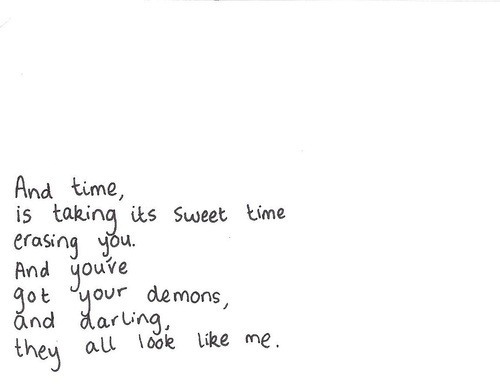 And time,
is taking its sweet time
erasing you.
And you've
got your demons,
and darling,
they all look like me.